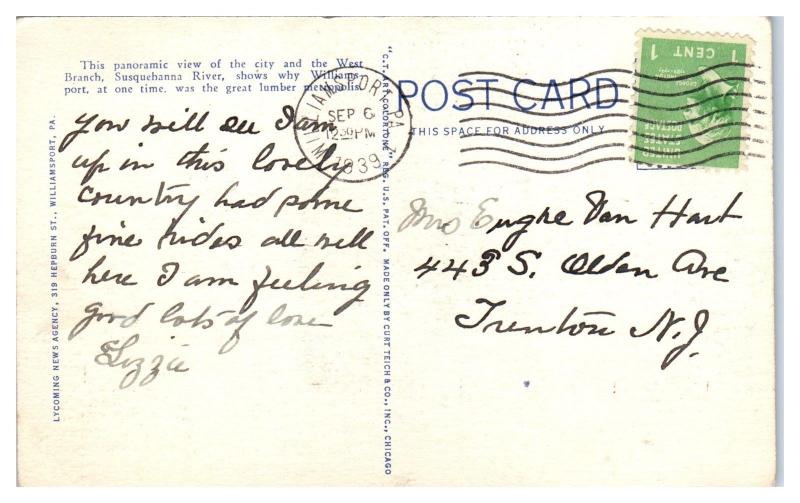 This panoramic view of the city and the West
Branch, Susquehanna River, shows why Williams-
port, at one time, was the great lumber metropolis.
You will see I am
up in this lovely
country had some
fine rides all well
here I am feeling
good lots of love
Lizzie
LYCOMING NEWS AGENCY, 319 HEPBURN ST., WILLIAMSPORT, PA.
"C.T. ART-COLORTONE" REG. U.S. PAT. OFF. MADE ONLY BY CURT TEICH & CO., INC., CHICAGO
WILLIAMSPORT, PA.
SEP 6
12 30 PM
1939
POST CARD
THIS SPACE FOR ADDRESS ONLY
1 CENT 1
UNITED
STATES
POSTAGE
Mrs Eugne Van Hart
443 S. Olden Ave
Trenton N.J.